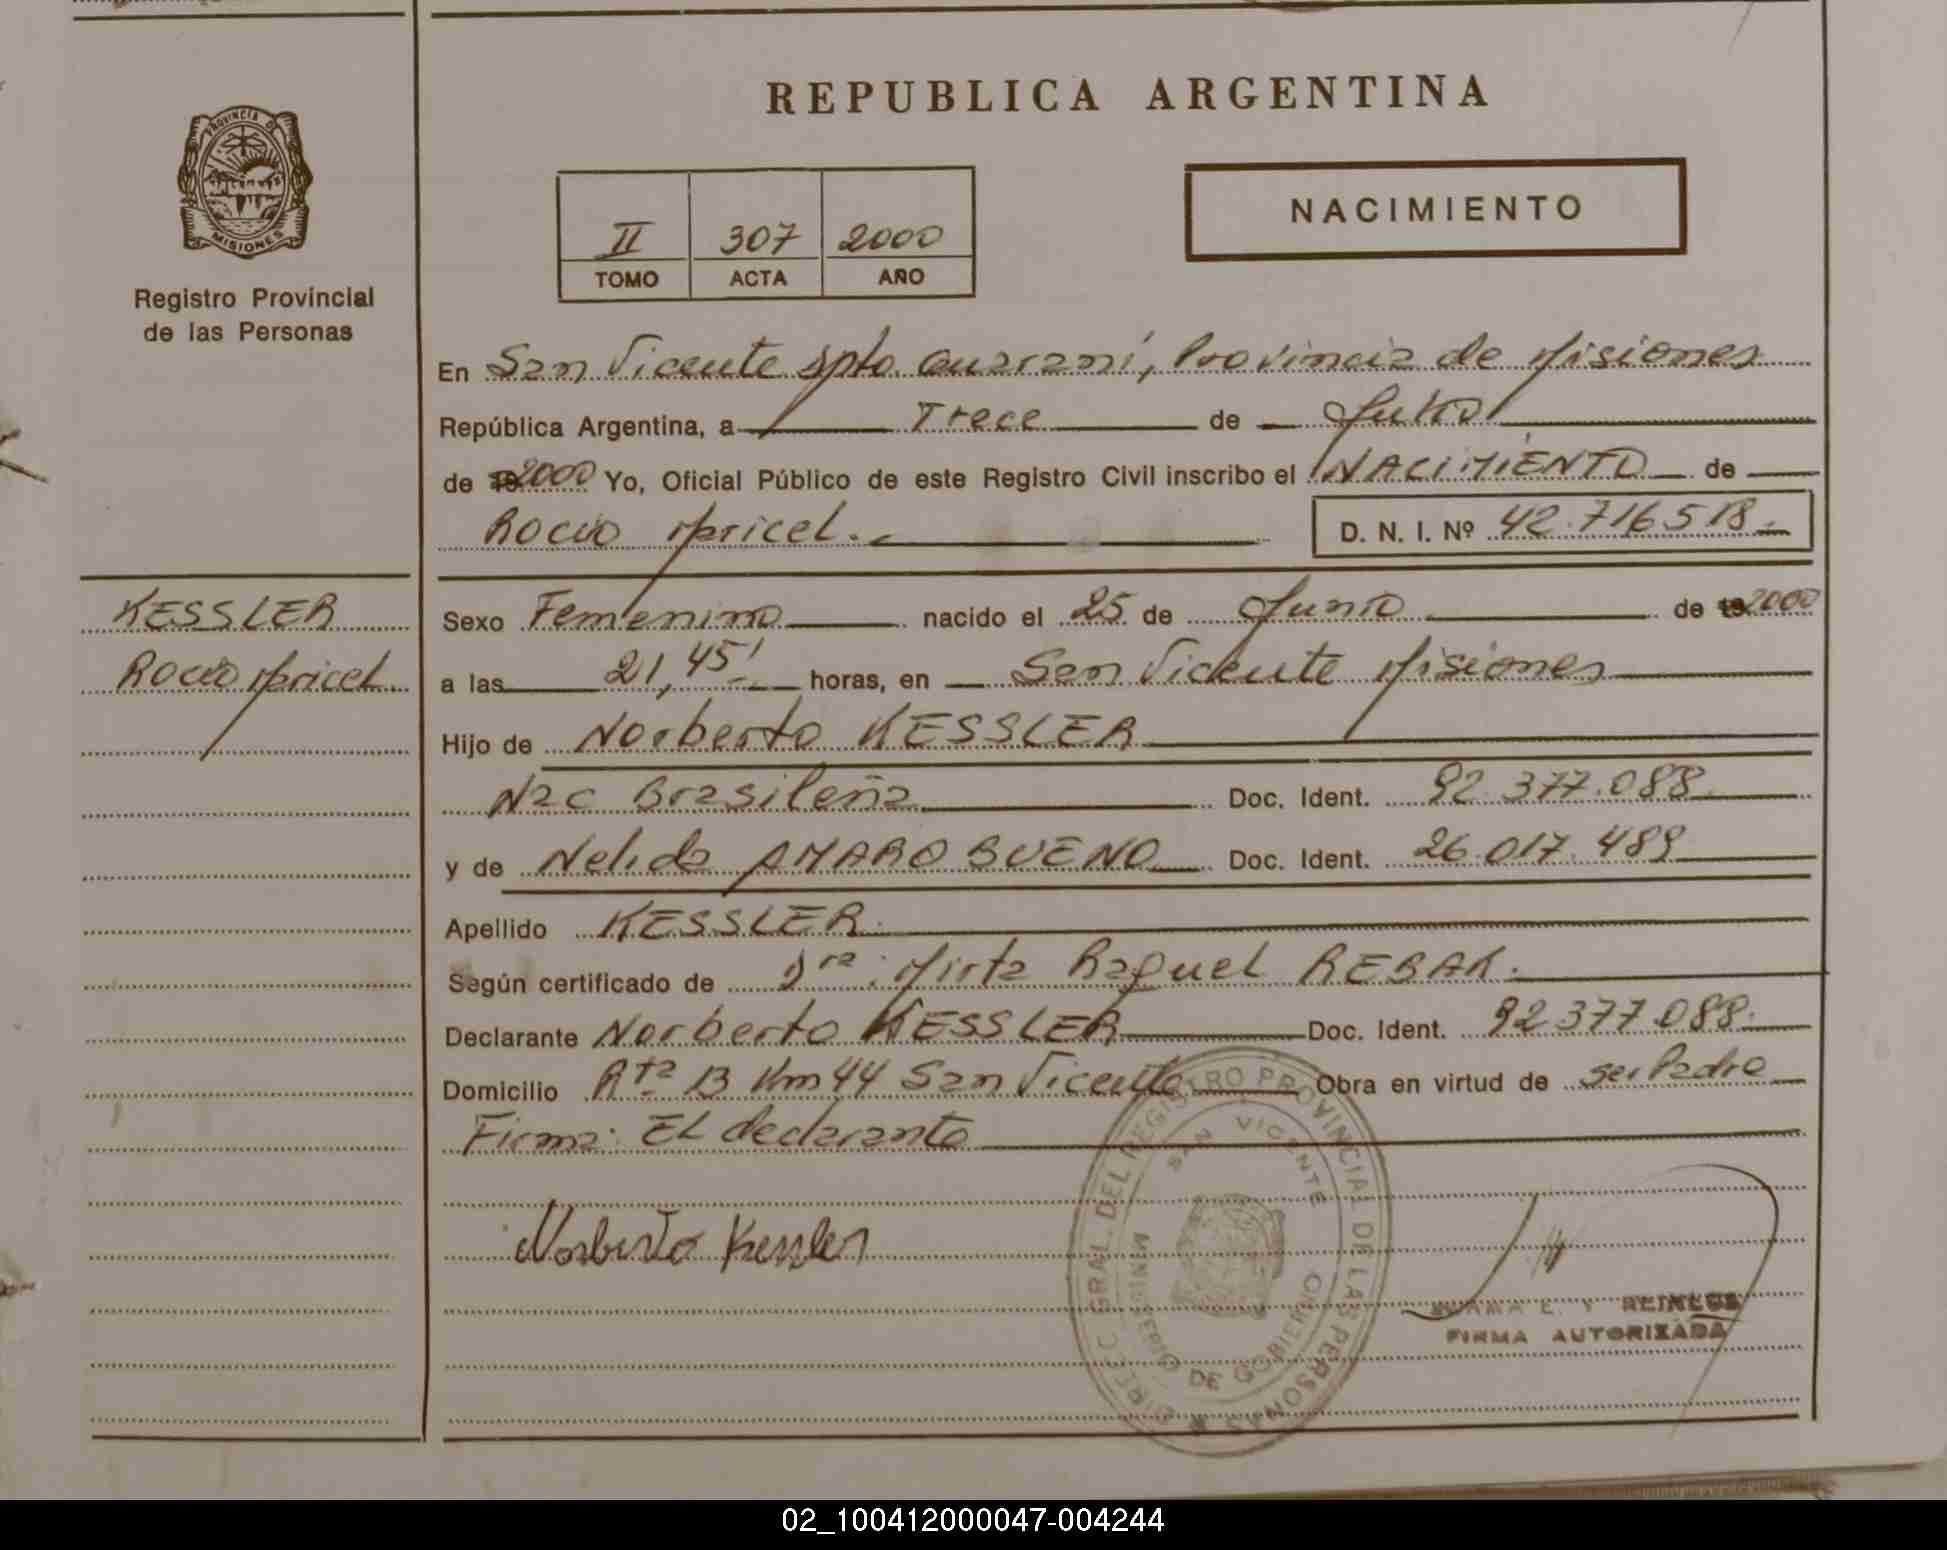 REPUBLICA ARGENTINA
PROVINCIA DE
MISIONES
Registro Provincial
de las Personas
II 307 2000
TOMO ACTA AÑO
NACIMIENTO
En San Vicente Dpto Guaraní, Provincia de Misiones
República Argentina, a Trece de Julio
de 2000 Yo, Oficial Público de este Registro Civil inscribo el NACIMIENTO de
Rocio Maricel. D. N. I. Nº 42.716518.
KESSLER
Rocio Maricel.
Sexo Femenino nacido el 25 de Junio de 2000
a las 21,45' horas, en San Vicente Misiones
Hijo de Norberto KESSLER
Nac Brasileña Doc. Ident. 92.377.088.
y de Nelida AMARO BUENO Doc. Ident. 26.017.489
Apellido KESSLER.
Según certificado de Dra. Mirta Raquel REBAK.
Declarante Norberto KESSLER Doc. Ident. 92377.088.
Domicilio Rta 13 Km 44 San Vicente Obra en virtud de ser Padre
Firma: El declarante
Norberto Kessler
DIREC. GRAL. DEL REGISTRO PROVINCIAL DE LAS PERSONAS
SAN VICENTE
MINISTERIO DE GOBIERNO
E. Y.
FIRMA AUTORIZADA
02_100412000047-004244